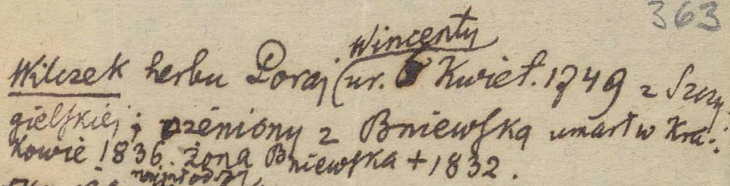 363
Wincenty
Wilczek herbu Poraj (ur. 6 Kwiet. 1749 z Szczy-
gielskiej; ożeniony z Bniewską umarł w Kra-
kowie 1836. Żona Bniewska + 1832.